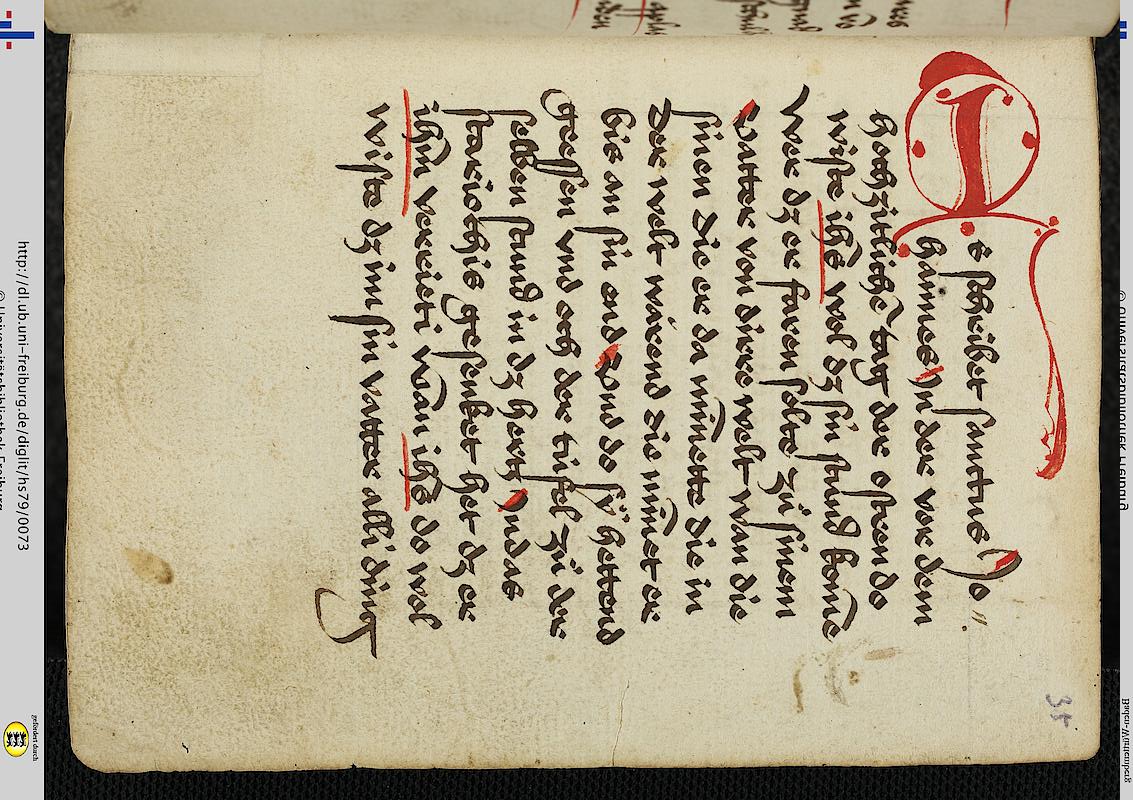 Is schribet sanctus Jo„
hannes Jn der vor dem
hochzitlichē tag der ostren do
wiste ihs̄ wol dz sin stund komē
wer dz er faren solte zů sinem
vatter von dirre welt wan die
sinen die er da miñette die in
der welt wārend die miñet er
bis an sin end vnd do sÿ hettend
Gessen vnd och der tüfel zů der
selben stund in dz hertz Judas
stariothis gesenket het dz er
ihm̄ verrieti wan ihs̄ do wol
wiste dz im sin vatter alli ding
35
http://dl.ub.uni-freiburg.de/diglit/hs79/0073
© Universitätsbibliothek Freiburg
gefördert durch
Baden-Württemberg